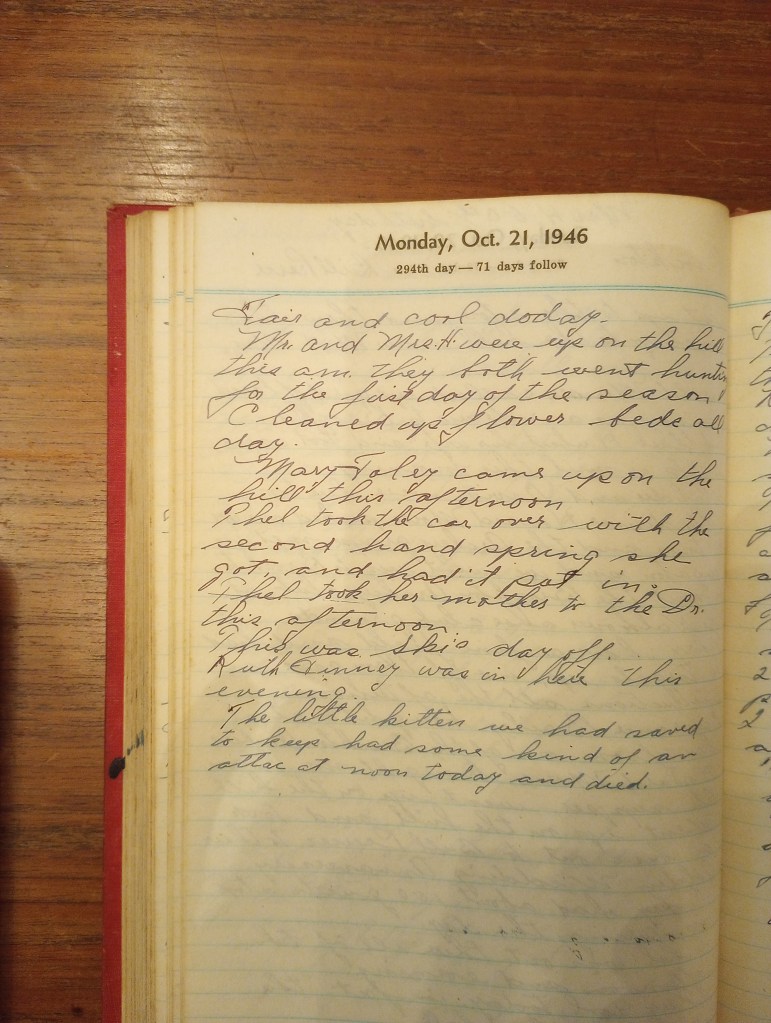 Monday, Oct. 21, 1946
294th day — 71 days follow
Fair and cool doday.
Mr. and Mrs. H. were up on the hill
this am. they both went huntin
for the first day of the season
Cleaned up flower beds all
day.
Mary Foley came up on the
hill this afternoon
Phel took the car over with the
second hand spring she
got, and had it put in.
Phel took her mother to the Dr.
this afternoon
This was Ski's day off.
Ruth Pinney was in here this
evening.
The little kitten we had saved
to keep had some kind of an
attac at noon today and died.